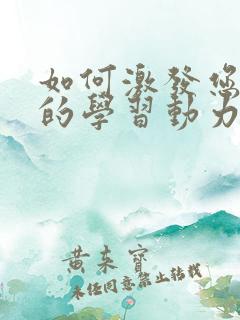 如何激發您
的學習動力
黃束寶
未经同意禁止转载